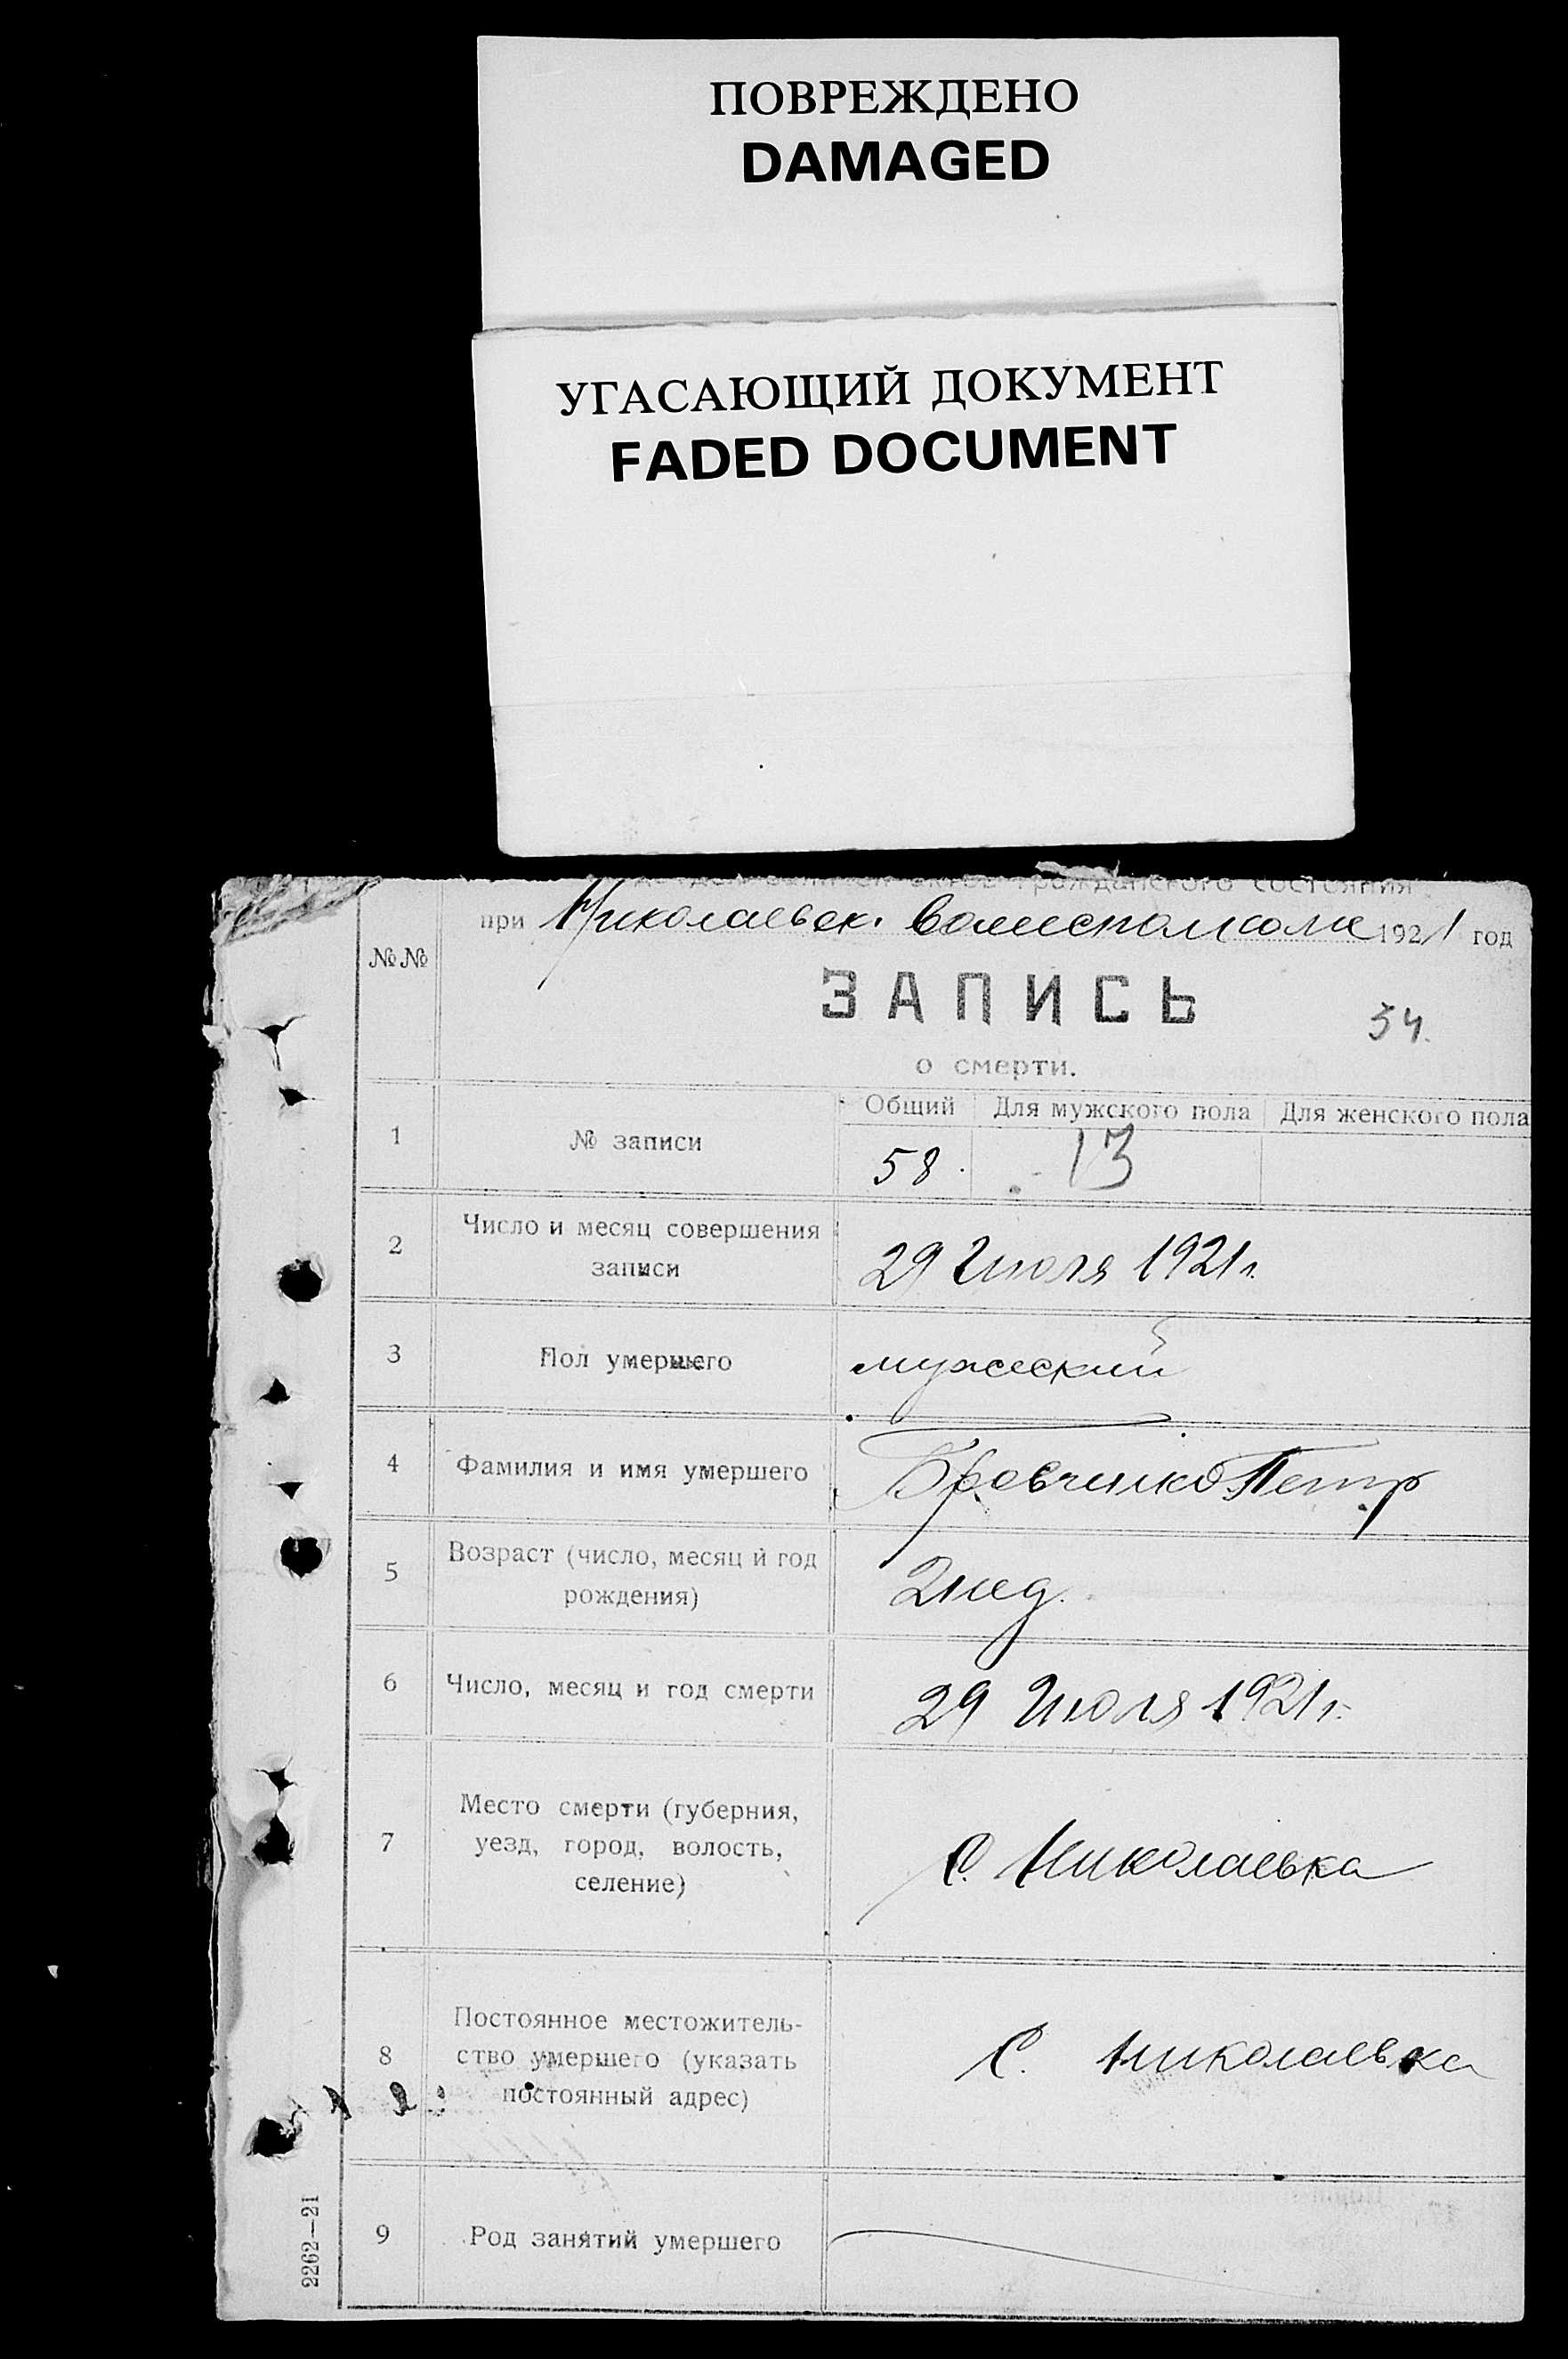 ПОВРЕЖДЕНО
DAMAGED
УГАСАЮЩИЙ ДОКУМЕНТ
FADED DOCUMENT
актов гражданского состояния
при Николаевск. волисполкоме 1921 год
№№
ЗАПИСЬ
34.
о смерти.
Общий Для мужского пола Для женского пола
1 № записи 58. 13
2 Число и месяц совершения
записи
29 Июля 1921 г.
3 Пол умершего мужеский
4 Фамилия и имя умершего Бровченко Петр
5 Возраст (число, месяц и год
рождения)
2 нед.
6 Число, месяц и год смерти 29 Июля 1921 г.
7 Место смерти (губерния,
уезд, город, волость,
селение)
С. Николаевка
8 Постоянное местожитель-
ство умершего (указать
постоянный адрес)
С. Николаевка
9 Род занятий умершего
2262—21